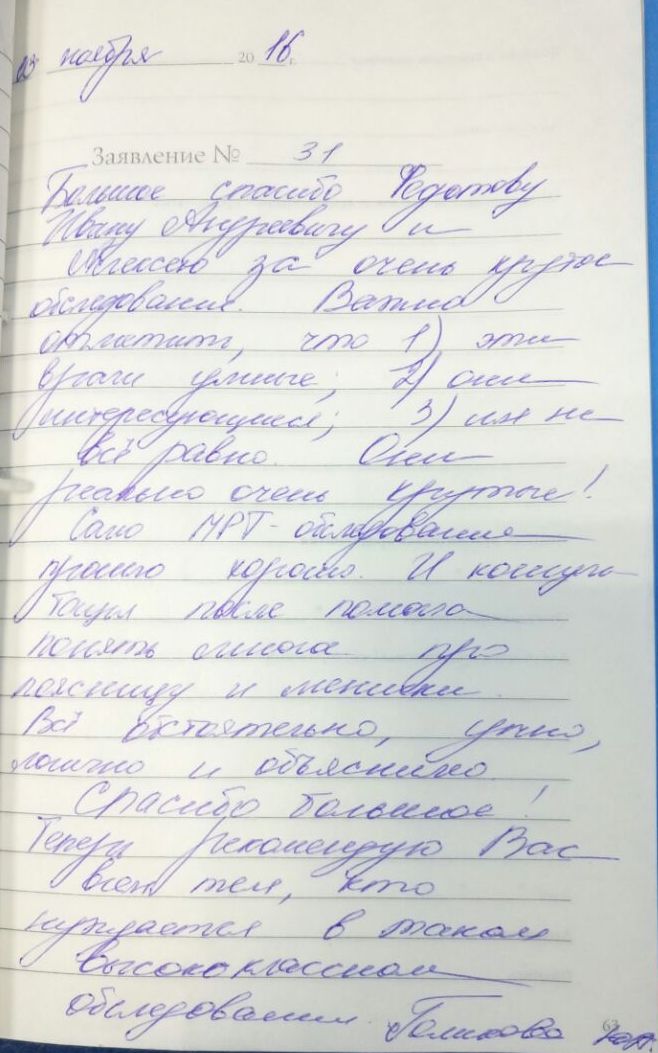 03 ноября 2016 г.
Заявление № 31
Большое спасибо Федотову
Ивану Андреевичу и
Алексею за очень крутое
обследование. Важно
отметить, что 1) эти
врачи умные; 2) они
интересующиеся; 3) им не
всё равно. Они
реально очень крутые!
Само МРТ-обследование
прошло хорошо. И консуль
тация после помогла
понять много про
поясницу и мениски.
Всё обстоятельно, умно,
логично и объяснимо.
Спасибо большое!
Теперь рекомендую Вас
всем тем, кто
нуждается в таком
высококлассном
обследовании. Голикова
63